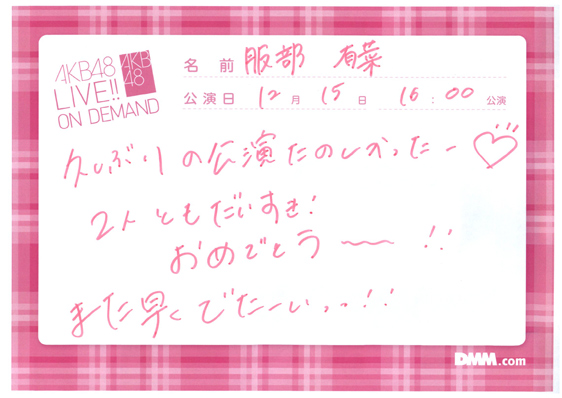 AKB48
LIVE!!
ON DEMAND
AKB
48
名 前 服部 有菜
公演日 12月 15日 16:00 公演
久しぶりの公演たのしかったー♡
2人ともだいすき!
おめでとう〜!!
また早くでたーいっっ!!
DMM.com